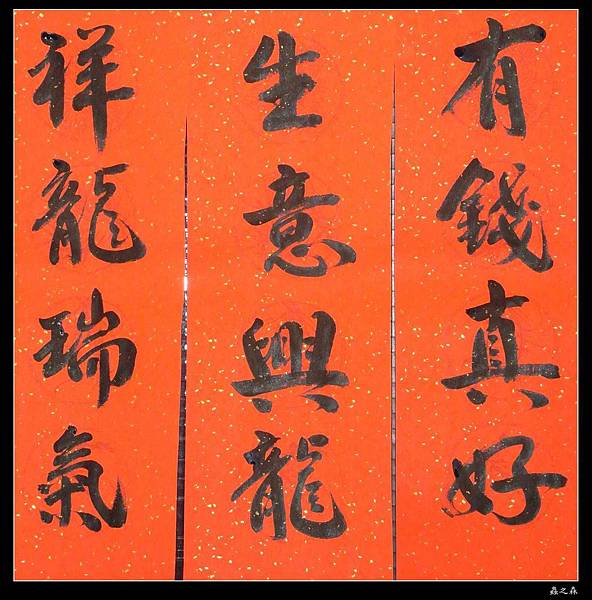 有錢真好
生意興龍
祥龍瑞氣
蟲之森